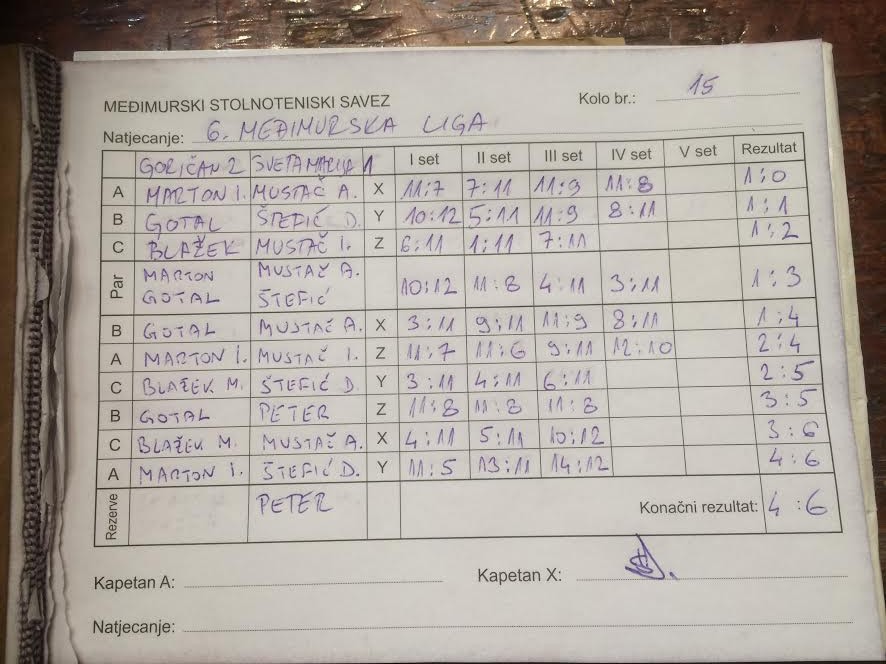 MEĐIMURSKI STOLNOTENISKI SAVEZ
Kolo br.: 15
Natjecanje: 6. MEĐIMURSKA LIGA
GORIČAN 2 SVETA MARIJA 1 I set II set III set IV set V set Rezultat
A MARTON I. MUSTAČ A. X 11:7 7:11 11:9 11:8 1:0
B GOTAL ŠTEFIĆ D. Y 10:12 5:11 11:9 8:11 1:1
C BLAŽEK MUSTAČ I. Z 6:11 1:11 7:11 1:2
Par MARTON MUSTAČ A.
GOTAL ŠTEFIĆ 10:12 11:8 4:11 3:11 1:3
B GOTAL MUSTAČ A. X 3:11 9:11 11:9 8:11 1:4
A MARTON I. MUSTAČ I. Z 11:7 11:6 9:11 12:10 2:4
C BLAŽEK M. ŠTEFIĆ D. Y 3:11 4:11 6:11 2:5
B GOTAL PETER Z 11:8 11:8 11:8 3:5
C BLAŽEK M. MUSTAČ A. X 4:11 5:11 10:12 3:6
A MARTON I. ŠTEFIĆ D. Y 11:5 13:11 14:12 4:6
Rezerve PETER Konačni rezultat: 4:6
Kapetan A: Kapetan X:
Natjecanje: